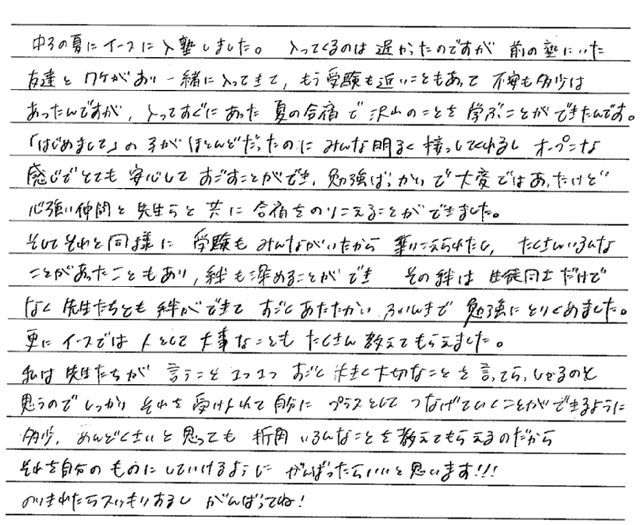 中3の夏にイースに入塾しました。 入ってくるのは遅かったのですが 前の塾にいた
友達とワケがあり一緒に入ってきて、もう受験も近いこともあって 不安も多少は
あったんですが、入ってすぐにあった夏の合宿で沢山のことを学ぶことができたんです。
「はじめまして」の子がほとんどだったのにみんな明るく接してくれるし オープンな
感じでとても安心してすごすことができ、勉強ばっかいで大変ではあったけど
心強い仲間と先生らと共に合宿をのりこえることができました。
そしてそれと同様に 受験もみんながいたから 乗りこえられたし、 たくさんいろんな
ことがあったこともあり、絆も深めることができ その絆は生徒同士だけで
なく先生たちとも絆ができて すごくあたたかいふいんきで 勉強にとりくめました。
更にイースでは人として大事なこともたくさん教えてもらえました。
私は先生たちが 言うこと1つ1つ すごく大きく大切なことを言ってらっしゃるのと
思うのでしっかりそれを受け入れて自分に プラスとして つなげていくことができるように
多少、めんどくさいと思っても 折角 いろんなことを教えてもらえるのだから
それを自分のものにしていけるように がんばったらいいと思います!!!
のりきれたら がんばってね!